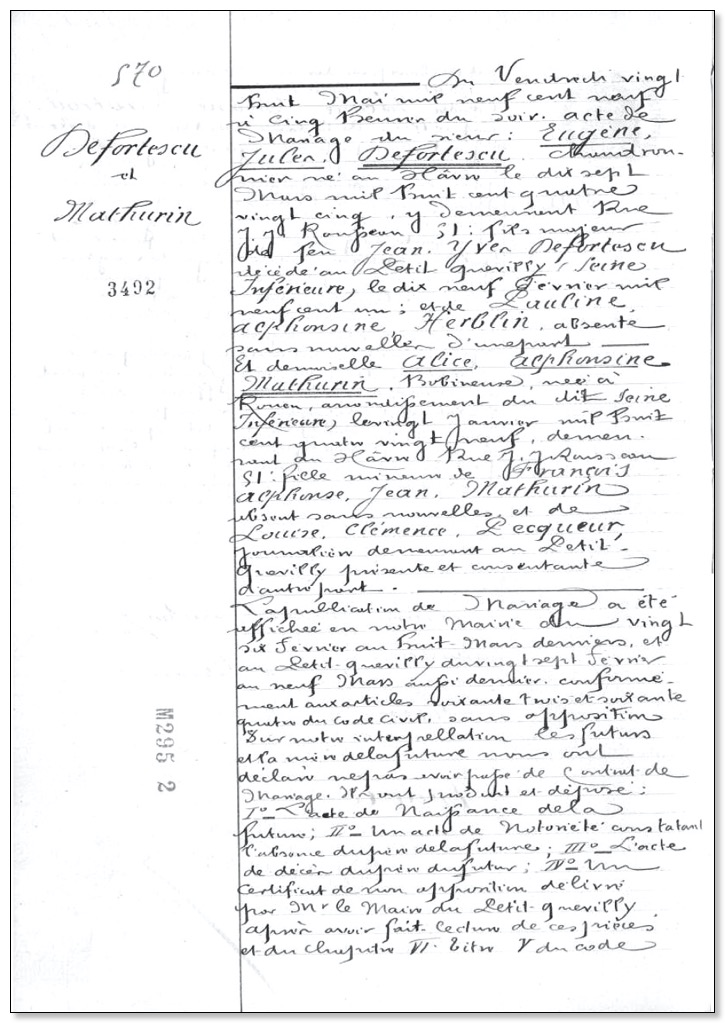 570
Defortescu
et
Mathurin
3492
M295 2
Du Vendredi vingt
huit Mai mil neuf cent neuf
à Cinq heures du soir. acte de
Mariage du sieur : Eugène,
Jules, Defortescu. Chaudron-
nier né au Hâvre le dix sept
Mars mil huit cent quatre
vingt cinq, y demeurant Rue
J. J. Rousseau 51 : fils majeur
de feu Jean. Yves Defortescu
décédé au Petit quevilly (Seine
Inférieure, le dix neuf Février mil
neuf cent un ; et de Pauline,
alphonsine, Herblin, absente
sans nouvelles d'une part
Et demoiselle alice, alphonsine
Mathurin, Bobineuse, née à
Rouen, arrondissement du dit Seine
Inférieure, le vingt Janvier mil huit
cent quatre vingt neuf, demeu-
rant au Hâvre Rue J. J. Rousseau
51 : fille mineure de François
alphonse, Jean, Mathurin
absent sans nouvelles et de
Louise, Clémence, Lecqueur,
journalière demeurant au Petit-
quevilly présente et consentante
d'autre part.
La publication de Mariage a été
affichée en notre Mairie du vingt
six Février au huit Mars derniers, et
au Petit-quevilly du vingt sept Février
au neuf Mars aussi dernier. conformé-
ment aux articles soixante trois et soixante
quatre du Code Civil, sans opposition
Sur notre interpellation les futurs
et la mère de la future nous ont
déclaré ne pas avoir passé de Contrat de
Mariage. Ils ont produit et déposé ;
I° L'acte de Naissance de la
future ; II° Un acte de Notoriété constatant
l'absence du père de la future ; III° L'acte
de décès du père du futur ; IV° Un
certificat de non opposition délivré
par Mr le Maire du Petit-quevilly
après avoir fait lecture de ces pièces
et du Chapitre VI. titre V du code